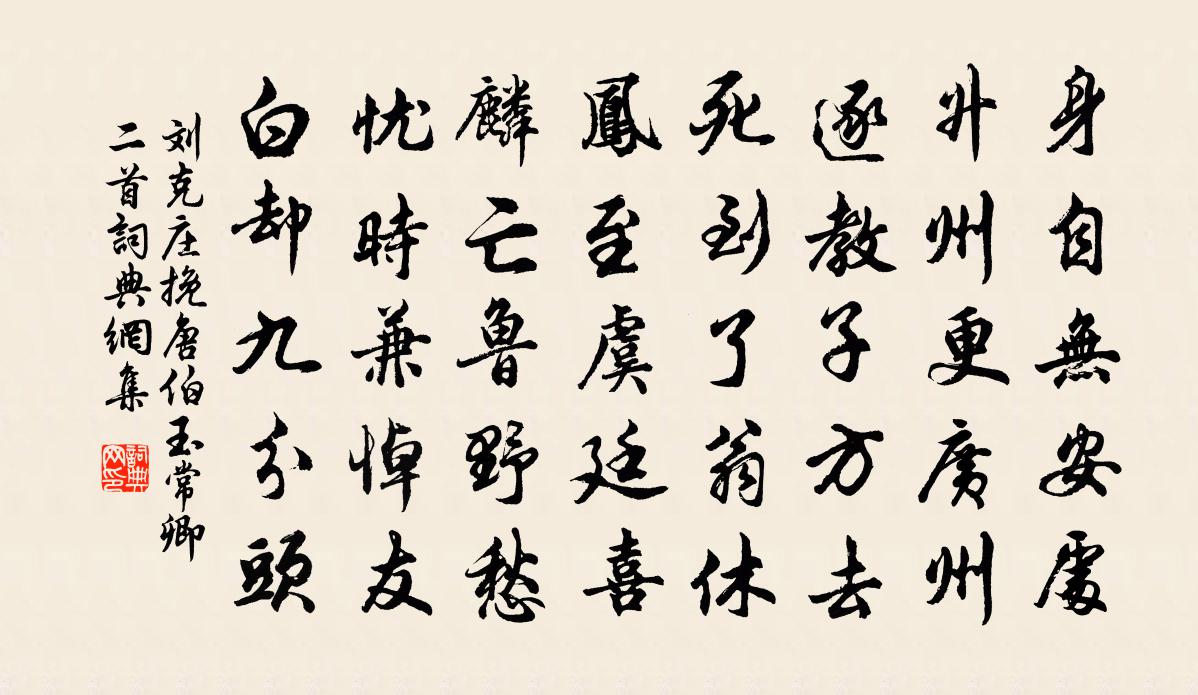 身自無安處
升州更廣州
逐教子方去
死到了翁休
鳳至虞廷喜
麟亡魯野愁
忧時兼悼友
白却九分頭
刘克庄挽唐伯玉常卿
二首詞典網集
詞典網印